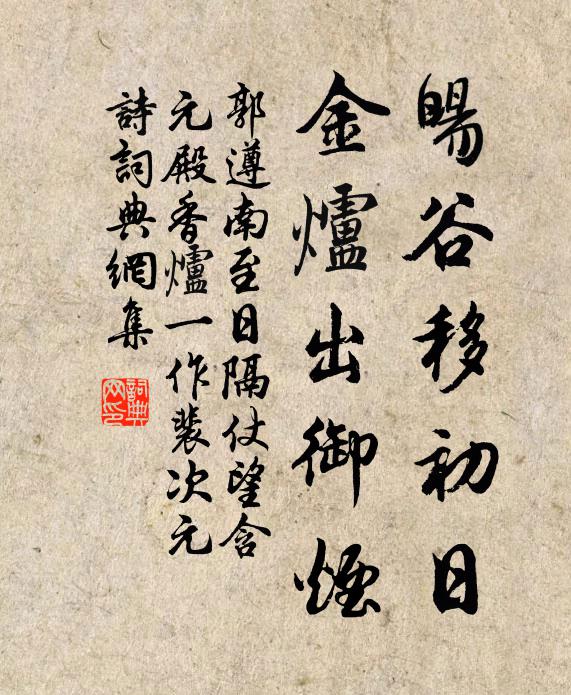 暘谷移初日
金爐出御煙
郭遵南至日隔仗望含
元殿香爐一作裴次元
詩詞典網集
詞典网印